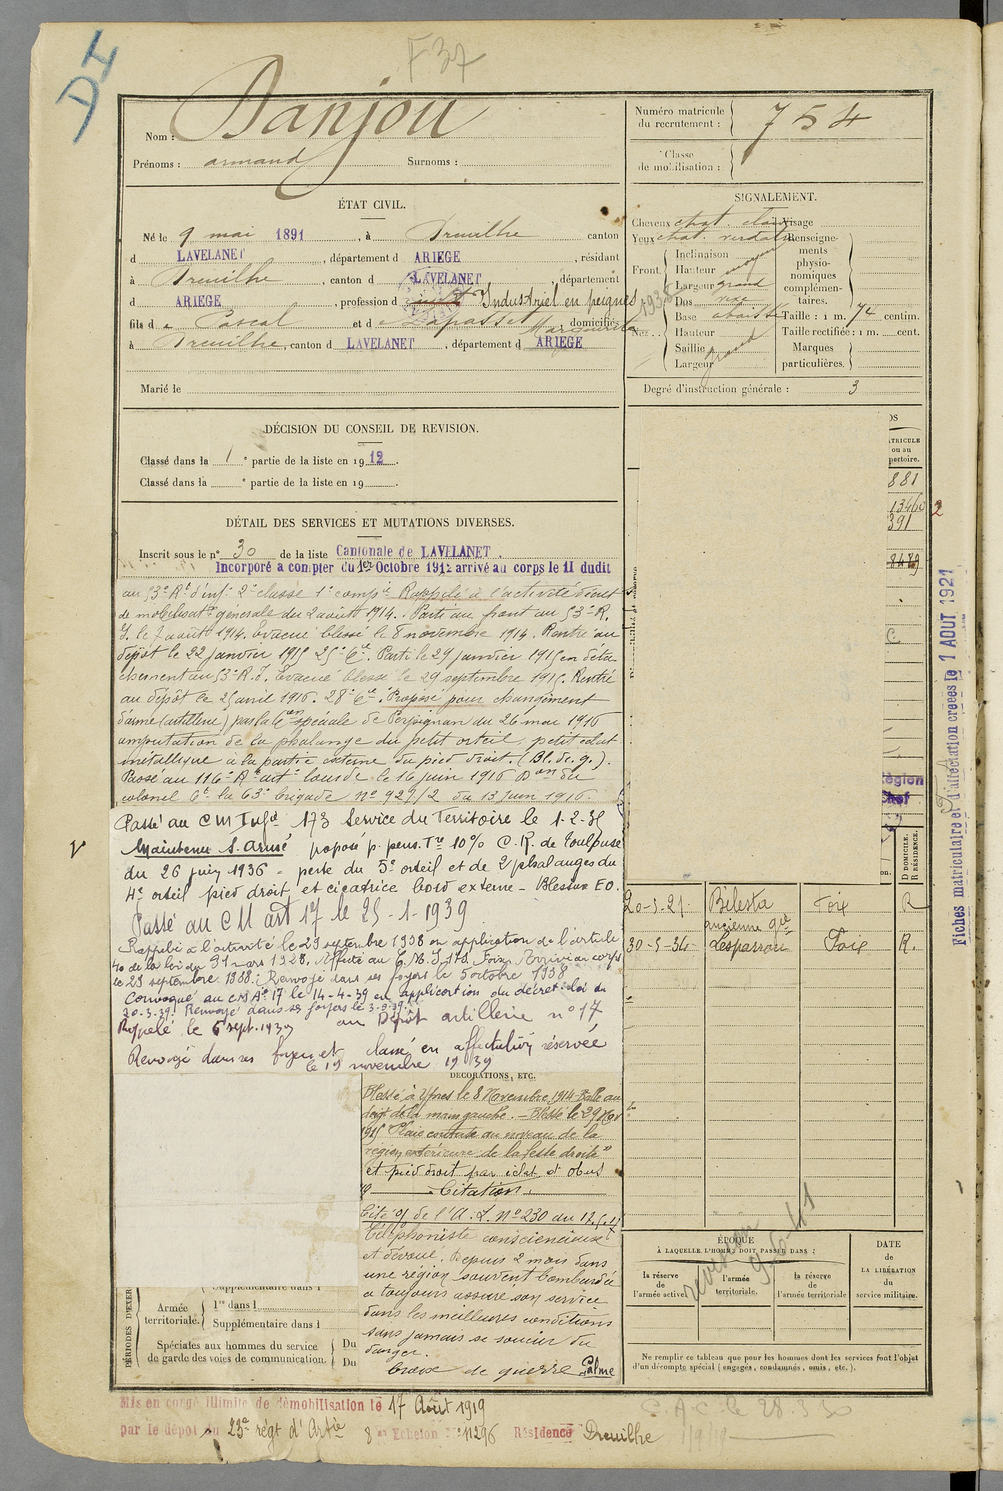 DI
F 37
Nom : Danjou
Prénoms : armand Surnoms :
Numéro matricule
du recrutement : 754
Classe
de mobilisation :
ÉTAT CIVIL.
Né le 9 mai 1891, à Dreuilhe canton
d LAVELANET, département d ARIEGE, résidant
à Dreuilhe, canton d LAVELANET, département
d ARIEGE, profession d Industriel en peignes 1938
fils de Pascal et de Lapasset Marguerite domiciliés
à Dreuilhe, canton d LAVELANET, département d ARIEGE
Marié le
SIGNALEMENT.
Cheveux chat. clair Visage
Yeux chat. verdatre Renseigne-
ments
physio-
nomiques
complémen-
taires.
Front. Inclinaison
Hauteur moyen
Largeur grand
Nez. Dos vexe
Base
Hauteur
Saillie
Largeur grand
Taille : 1 m. 74 centim.
Taille rectifiée : 1 m. cent.
Marques
particulières.
Degré d'instruction générale : 3
DÉCISION DU CONSEIL DE REVISION.
Classé dans la 1e partie de la liste en 1912.
Classé dans la e partie de la liste en 19 .
DÉTAIL DES SERVICES ET MUTATIONS DIVERSES.
Inscrit sous le n° 30 de la liste Cantonale de LAVELANET.
Incorporé a compter du 1er Octobre 1912 arrivé au corps le 11 dudit
au 53e Rt d'inf. 2e classe 1e compie Rappelé à l'activité décret
de mobilisaton générale du 2 août 1914. Parti au front au 53e R.
I. le 7 août 1914. Evacué blessé le 8 novembre 1914. Rentré au
dépôt le 22 janvier 1915 25e Cie. Parti le 29 janvier 1915 en déta-
chement au 53e R.I. Evacué blessé le 29 septembre 1915. Rentré
au dépôt le 25 avril 1916. 28e Cie. Proposé pour changement
d'arme (artillerie) par la Con spéciale de Perpignan du 26 mai 1916
amputation de la phalange du petit orteil, petit éclat
métallique à la partie externe du pied droit. (Bl. de g.).
Passé au 116e Rt art. lourde le 16 juin 1916 Don du
colonel Ct la 63e brigade n° 929/2 du 13 juin 1916.
Passé au CM Infie 173 Service du Territoire le 1-2-35
V Maintenu S. armé proposé p. pens. Tre 10% C.R. de Toulouse
du 26 juin 1936 - perte du 5e orteil et de 2 phalanges du
4e orteil pied droit, et cicatrice bord externe - Blessure EO.
Passé au CM art 17 le 25-1-1939
Rappelé à l'activité le 23 septembre 1938 en application de l'article
40 de la loi du 31 mars 1928. Affecté au C.M.I. 173 Foix. Arrivé au corps
le 23 septembre 1938. Renvoyé dans ses foyers le 5 octobre 1938
Convoqué au CM At 17 le 14-4-39 en application du décret-loi du
20-3-39. Renvoyé dans ses foyers le
Rappelé le 6 sept. 1939 au Dépôt artillerie n° 17
Renvoyé dans ses foyers et classé en affectation réservée
le 19 novembre 1939
DÉCORATIONS, ETC.
Blessé à Ypres le 8 Novembre 1914 Balle au
doigt de la main gauche. - Blessé le 29
1915 "Plaie contuse au niveau de la
région extérieure de la fesse droite"
et pied droit par éclat d'obus
Citation.
Cité O/ de l'A.L. N° 230 du
Téléphoniste consciencieux
et dévoué. Depuis 2 mois dans
une région souvent bombardée
a toujours assuré son service
dans les meilleures conditions
sans jamais se soucier du
danger.
Croix de guerre Palme
PÉRIODES D'EXER
Supplémentaire dans l
Armée
territoriale. 1re dans l
Supplémentaire dans l
Spéciales aux hommes du service
de garde des voies de communication. Du
Du
OS
ATRICULE
ou au
pertoire.
881
13460
391
8489
2
C
Région
Chef
D DOMICILE.
R RÉSIDENCE.
20-5-21 Bélesta Foix R
30-5-34 ancienne gie Lesparrou Foix R.
revision 9-6-41
ÉPOQUE
À LAQUELLE L'HOMME DOIT PASSER DANS :
la réserve
de
l'armée active
l'armée
territoriale.
la réserve
de
l'armée territoriale
DATE
de
LA LIBÉRATION
du
service militaire.
Ne remplir ce tableau que pour les hommes dont les services font l'objet
d'un décompte spécial (engagés, condamnés, omis, etc.).
Fiches matriculaire et d'affectation créées le 1 AOUT 1921
Mis en congé illimité de démobilisation le 17 Août 1919
par le dépôt du 23e régt d'Artie 8e Echelon N° 11296 Résidence Dreuilhe
C.A.C. le 28.3.30